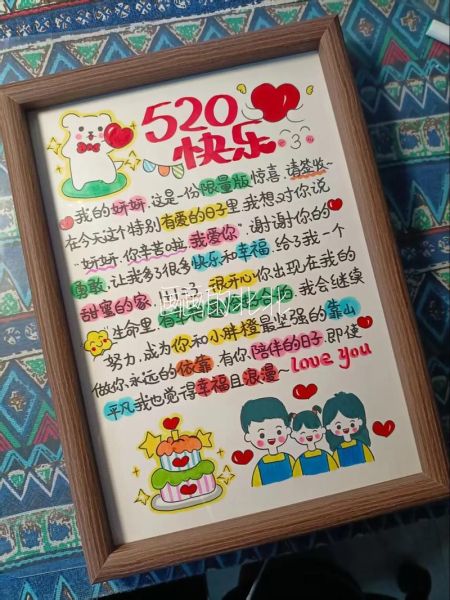 520
快乐
我的娇娇,这是一份限量版惊喜,请签收~
在今天这个特别有爱的日子里,我想对你说
"娇娇,你辛苦啦,我爱你",谢谢你的
勇敢,让我多了很多快乐和幸福,给了我一个
甜蜜的家,很开心你出现在我的
生命里,我会继续
努力,成为你和小胖橙最坚强的靠山
做你永远的依靠,有你陪伴的日子,即使
平凡我也觉得幸福且浪漫~love you